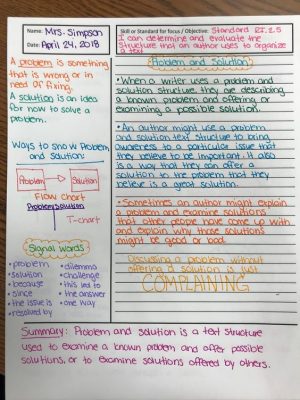 Name: Mrs. Simpson
Date: April 24, 2018
Skill or Standard for focus / Objective: Standard RI.2.5
I can determine and evaluate the
structure that an author uses to organize
a text.
A problem is something
that is wrong or in
need of fixing.
A solution is an idea
for how to solve a
problem.
Ways to show Problem
and solution:
Problem → Solution
Flow chart
Problem Solution
T-chart
Signal Words
• problem
• solution
• because
• since
• the issue is
• resolved by
• dilemma
• challenge
• this led to
• the answer
• one way
Problem and Solution
• When a writer uses a problem and
solution structure, they are describing
a known problem and offering or
examining a possible solution.
• An author might use a problem
and solution text structure to bring
awareness to a particular issue that
they believe to be important. It also
is a way that they can offer a
solution to the problem that they
believe is a great solution.
• Sometimes an author might explain
a problem and examine solutions
that other people have come up with
and explain why those solutions
might be good or bad.
Discussing a problem without
offering a solution is just
COMPLAINING
Summary: Problem and solution is a text structure
used to examine a known problem and offer possible
solutions, or to examine solutions offered by others.